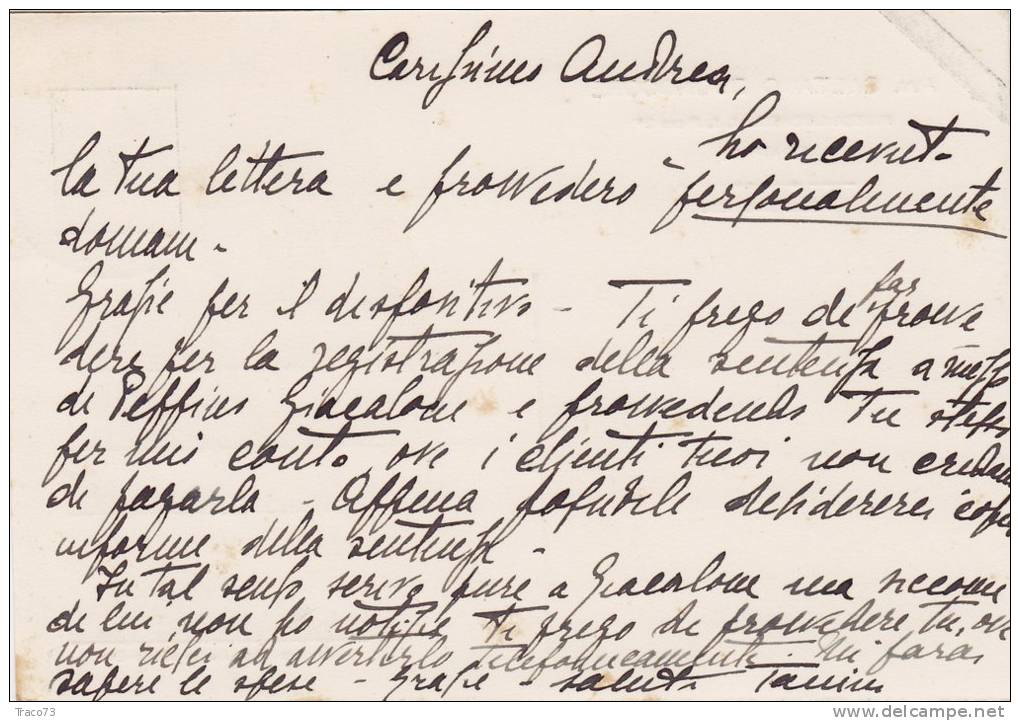 Carissimo Andrea,
ho ricevuto
la tua lettera e provvederò personalmente
domani -
Grazie per il dispositivo - Ti prego de far provve
dere per la registrazione della sentenza a mezzo
di Peppino Giacalone e provvedendo tu stesso
per mio conto, ove i clienti tuoi non credano
di pagarla - Appena possibile desidererei copia
informe della sentenza -
In tal senso scrivo pure a Giacalone ma siccome
di lui non ho notizie ti prego di provvedere tu, ove
non riesci ad avvertirlo telefonicamente. Mi farai
sapere le spese - Grazie - saluti
Traco73
delcampe.net